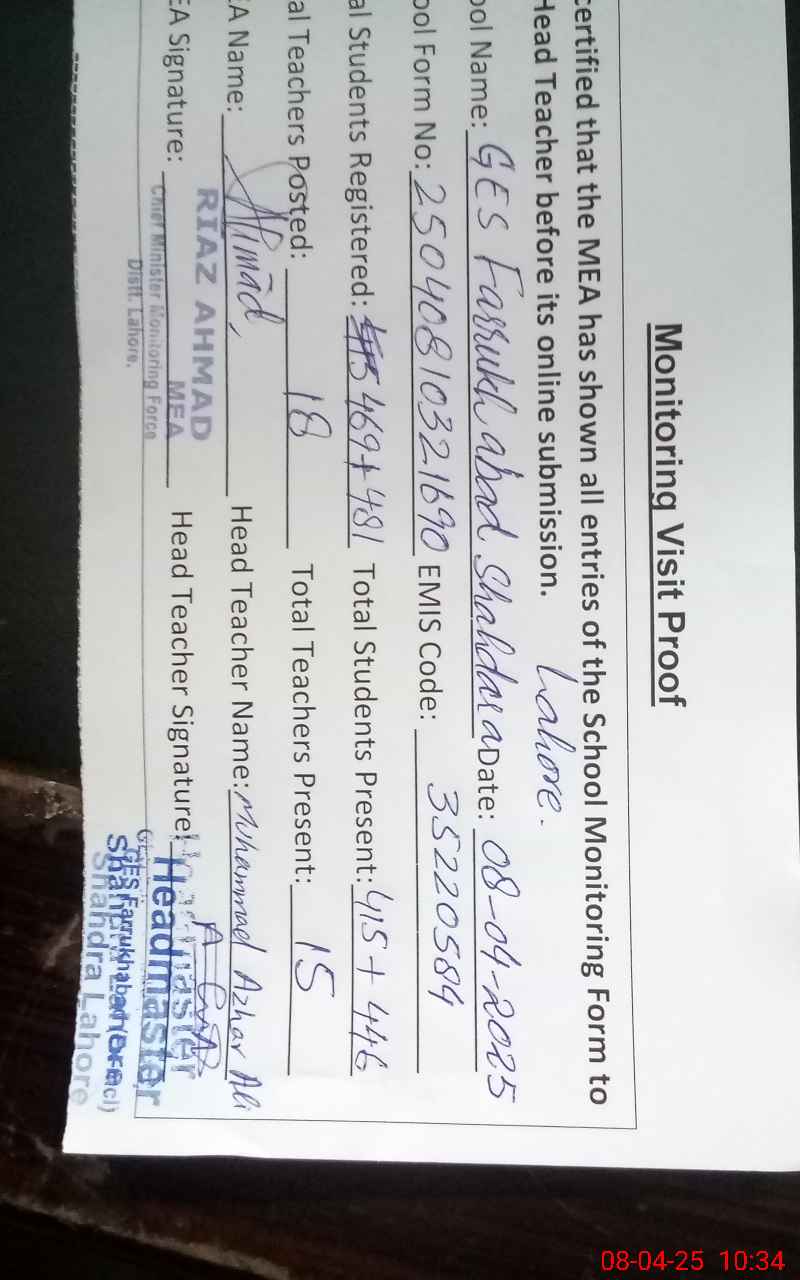 Monitoring Visit Proof
certified that the MEA has shown all entries of the School Monitoring Form to
Head Teacher before its online submission.
Lahore.
ool Name: GES Farrukh abad Shahdara Date: 08-04-2025
ool Form No: 25040810321690 EMIS Code: 35220584
al Students Registered: 469+481 Total Students Present: 415+446
al Teachers Posted: 18 Total Teachers Present: 15
EA Name: Head Teacher Name: Muhammad Azhar Ali
EA Signature: Head Teacher Signature:
RIAZ AHMAD
MEA
Chief Minister Monitoring Force
Distt. Lahore.
Headmaster
GES Farrukhabad
Shahdra Lahore
08-04-25 10:34